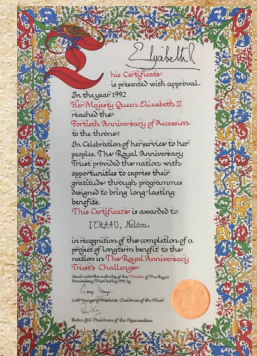 Elizabeth R
This Certificate
is presented with approval.
In the year 1992
Her Majesty Queen Elizabeth II
reached the
Fortieth Anniversary of Accession
to the throne.
In Celebration of her service to her
peoples, The Royal Anniversary
Trust provided the nation with
opportunities to express their
gratitude through programmes
designed to bring long-lasting
benefits.
This Certificate is awarded to
ITHAAD, Nelson.
in recognition of the completion of a
project of longterm benefit to the
nation as The Royal Anniversary
Trust's Challenge
under the authority of the Trustees of The Royal
Anniversary Trust by
Chairman of the
Chairman of the Organisation